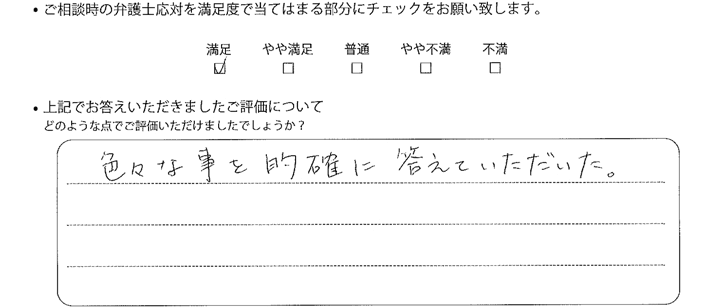 • ご相談時の弁護士応対を満足度で当てはまる部分にチェックをお願い致します。
満足 やや満足 普通 やや不満 不満
☑ □ □ □ □
• 上記でお答えいただきましたご評価について
どのような点でご評価いただけましたでしょうか？
色々な事を的確に答えていただいた。